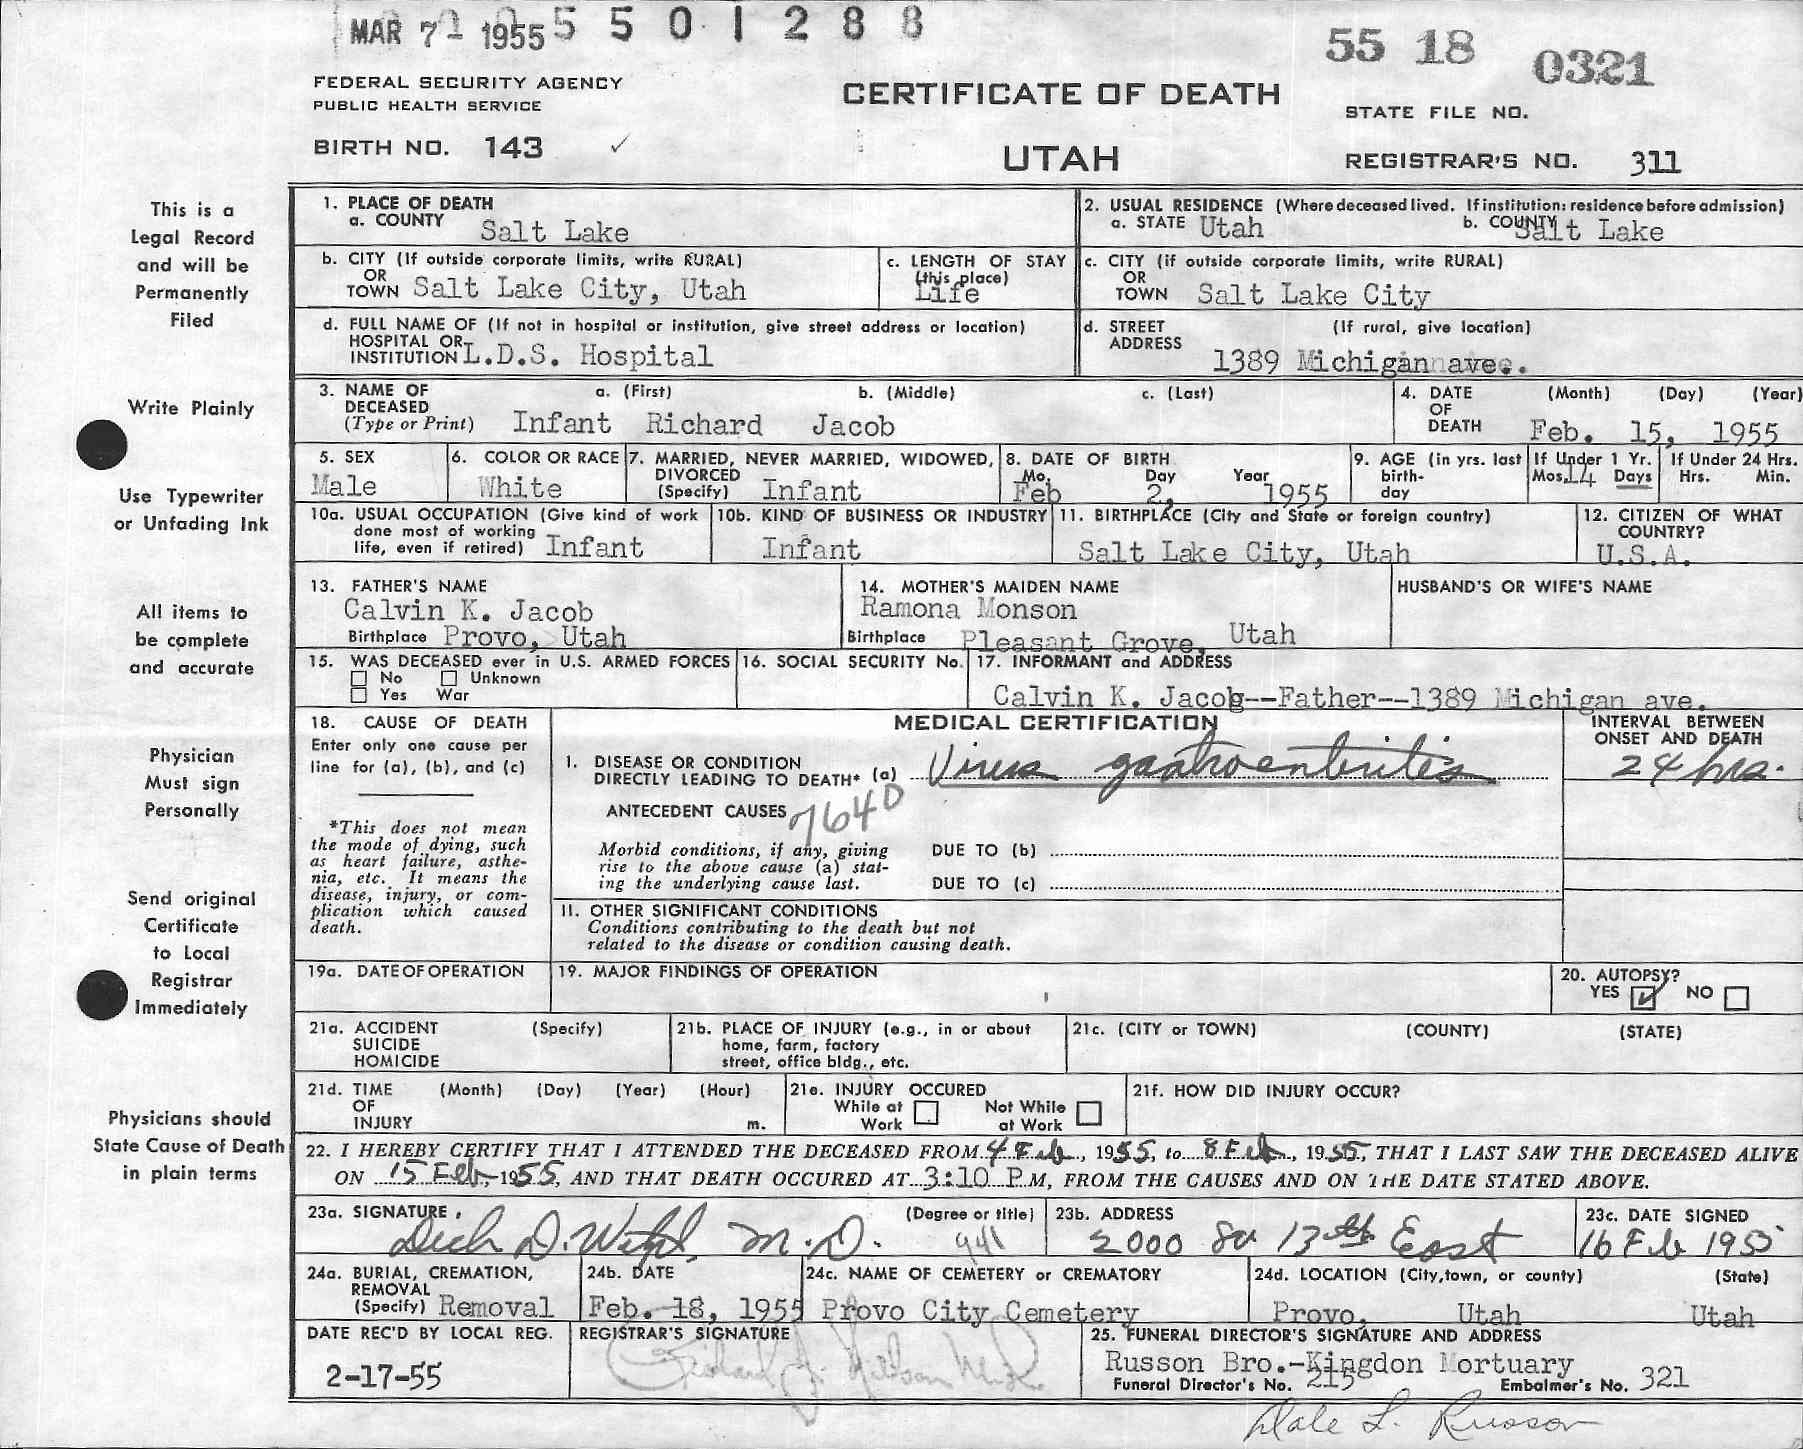 MAR 7 1955 5 5 0 1 2 8 8
55 18 0321
FEDERAL SECURITY AGENCY
PUBLIC HEALTH SERVICE
CERTIFICATE OF DEATH
STATE FILE NO.
BIRTH NO. 143 ✓
UTAH
REGISTRAR'S NO. 311
This is a
Legal Record
and will be
Permanently
Filed
Write Plainly
Use Typewriter
or Unfading Ink
All items to
be complete
and accurate
Physician
Must sign
Personally
Send original
Certificate
to Local
Registrar
Immediately
Physicians should
State Cause of Death
in plain terms
1. PLACE OF DEATH
a. COUNTY Salt Lake
2. USUAL RESIDENCE (Where deceased lived. If institution: residence before admission)
a. STATE Utah b. COUNTY Salt Lake
b. CITY (If outside corporate limits, write RURAL)
OR
TOWN Salt Lake City, Utah
c. LENGTH OF STAY
(this place)
Life
c. CITY (if outside corporate limits, write RURAL)
OR
TOWN Salt Lake City
d. FULL NAME OF (If not in hospital or institution, give street address or location)
HOSPITAL OR
INSTITUTION L.D.S. Hospital
d. STREET (If rural, give location)
ADDRESS
1389 Michigan ave.
3. NAME OF a. (First) b. (Middle) c. (Last)
DECEASED
(Type or Print) Infant Richard Jacob
4. DATE (Month) (Day) (Year)
OF
DEATH Feb. 15, 1955
5. SEX
Male
6. COLOR OR RACE
White
7. MARRIED, NEVER MARRIED, WIDOWED,
DIVORCED
(Specify) Infant
8. DATE OF BIRTH
Mo. Day Year
Feb 2, 1955
9. AGE (in yrs. last
birth-
day
If Under 1 Yr.
Mos. 14 Days
If Under 24 Hrs.
Hrs. Min.
10a. USUAL OCCUPATION (Give kind of work
done most of working
life, even if retired) Infant
10b. KIND OF BUSINESS OR INDUSTRY
Infant
11. BIRTHPLACE (City and State or foreign country)
Salt Lake City, Utah
12. CITIZEN OF WHAT
COUNTRY?
U.S.A.
13. FATHER'S NAME
Calvin K. Jacob
Birthplace Provo, Utah
14. MOTHER'S MAIDEN NAME
Ramona Monson
Birthplace Pleasant Grove, Utah
HUSBAND'S OR WIFE'S NAME
15. WAS DECEASED ever in U.S. ARMED FORCES
No Unknown
Yes War
16. SOCIAL SECURITY No.
17. INFORMANT and ADDRESS
Calvin K. Jacob--Father--1389 Michigan ave.
18. CAUSE OF DEATH
Enter only one cause per
line for (a), (b), and (c)
*This does not mean
the mode of dying, such
as heart failure, asthe-
nia, etc. It means the
disease, injury, or com-
plication which caused
death.
MEDICAL CERTIFICATION
INTERVAL BETWEEN
ONSET AND DEATH
I. DISEASE OR CONDITION
DIRECTLY LEADING TO DEATH* (a) Virus gastroenteritis 24 hrs.
ANTECEDENT CAUSES 7640
Morbid conditions, if any, giving
rise to the above cause (a) stat-
ing the underlying cause last.
DUE TO (b)
DUE TO (c)
II. OTHER SIGNIFICANT CONDITIONS
Conditions contributing to the death but not
related to the disease or condition causing death.
19a. DATE OF OPERATION
19. MAJOR FINDINGS OF OPERATION
20. AUTOPSY?
YES ✓ NO
21a. ACCIDENT (Specify)
SUICIDE
HOMICIDE
21b. PLACE OF INJURY (e.g., in or about
home, farm, factory
street, office bldg., etc.
21c. (CITY or TOWN) (COUNTY) (STATE)
21d. TIME (Month) (Day) (Year) (Hour)
OF
INJURY m.
21e. INJURY OCCURED
While at Work
Not While at Work
21f. HOW DID INJURY OCCUR?
22. I HEREBY CERTIFY THAT I ATTENDED THE DECEASED FROM 4 Feb, 1955, to 8 Feb, 1955, THAT I LAST SAW THE DECEASED ALIVE
ON 15 Feb, 1955, AND THAT DEATH OCCURED AT 3:10 P.M, FROM THE CAUSES AND ON THE DATE STATED ABOVE.
23a. SIGNATURE (Degree or title)
D. M.D. 941
23b. ADDRESS
2000 So 13th East
23c. DATE SIGNED
16 Feb 1955
24a. BURIAL, CREMATION,
REMOVAL
(Specify) Removal
24b. DATE
Feb. 18, 1955
24c. NAME OF CEMETERY or CREMATORY
Provo City Cemetery
24d. LOCATION (City, town, or county) (State)
Provo, Utah Utah
DATE REC'D BY LOCAL REG.
2-17-55
REGISTRAR'S SIGNATURE
25. FUNERAL DIRECTOR'S SIGNATURE AND ADDRESS
Russon Bro.-Kingdon Mortuary
Funeral Director's No. 215 Embalmer's No. 321
Dale L. Russon